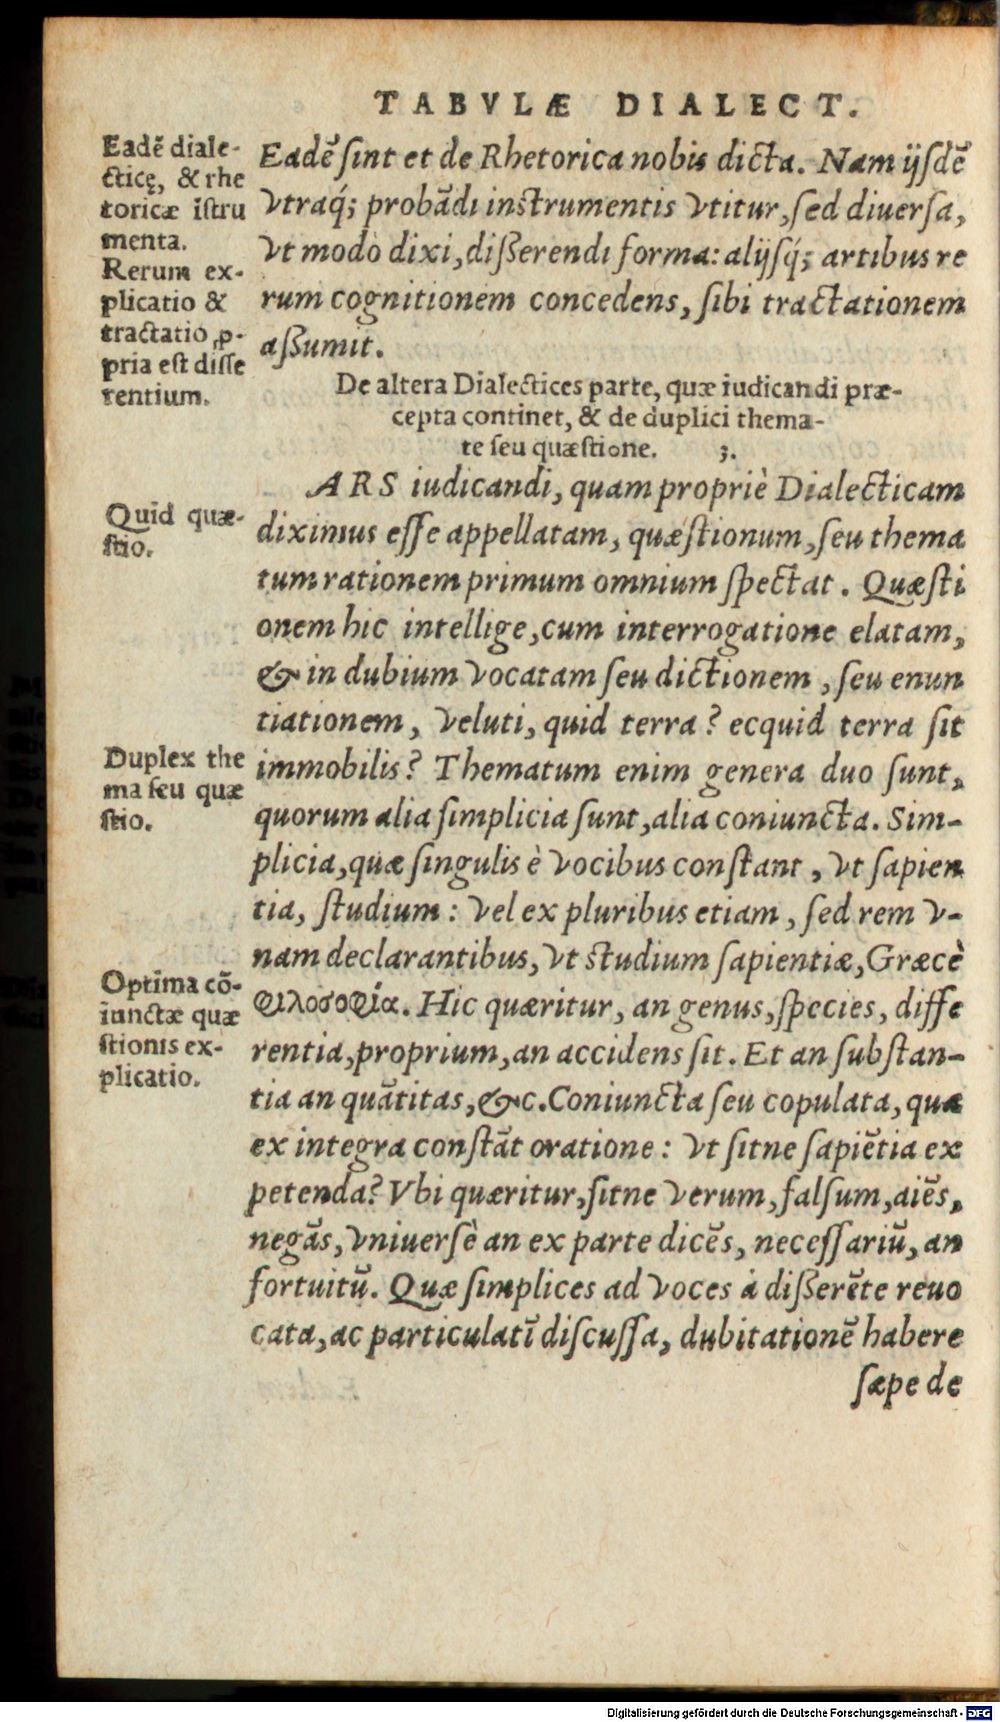 TABVLÆ DIALECT.
Eadẽ diale-
cticę, & rhe
toricæ īstru
menta.
Rerum ex-
plicatio &
tractatio ꝓ-
pria est disse
rentium.
Eadẽ sint et de Rhetorica nobis dicta. Nam ijsdẽ
vtraq́; probãdi instrumentis vtitur, sed diuersa,
vt modò dixi, disserendi forma: alijsq́; artibus re
rum cognitionem concedens, sibi tractationem
assumit.
De altera Dialectices parte, quæ iudicandi præ-
cepta continet, & de duplici thema-
te seu quæstione. 3.
Quid quæ-
stio.
ARS iudicandi, quam propriè Dialecticam
diximus esse appellatam, quæstionum, seu thema
tum rationem primum omnium spectat. Quæsti
onem hic intellige, cum interrogatione elatam,
& in dubium vocatam seu dictionem, seu enun
tiationem, veluti, quid terra? ecquid terra sit
Duplex the
ma seu quæ
stio.
immobilis? Thematum enim genera duo sunt,
quorum alia simplicia sunt, alia coniuncta. Sim-
plicia, quæ singulis è vocibus constant, vt sapien
tia, studium: vel ex pluribus etiam, sed rem v-
nam declarantibus, vt studium sapientiæ, Græcè
Optima cõ-
iunctæ quæ
stionis ex-
plicatio.
φιλοσοφία. Hic quæritur, an genus, species, diffe
rentia, proprium, an accidens sit. Et an substan-
tia an quãtitas, &c. Coniuncta seu copulata, quæ
ex integra constãt oratione: vt sitne sapiẽtia ex
petenda? Vbi quæritur, sitne verum, falsum, aiẽs,
negãs, vniuersè an ex parte dicẽs, necessariũ, an
fortuitũ. Quæ simplices ad voces à disserẽte reuo
cata, ac particulatĩ discussa, dubitationẽ habere
sæpe de
Digitalisierung gefördert durch die Deutsche Forschungsgemeinschaft - DFG